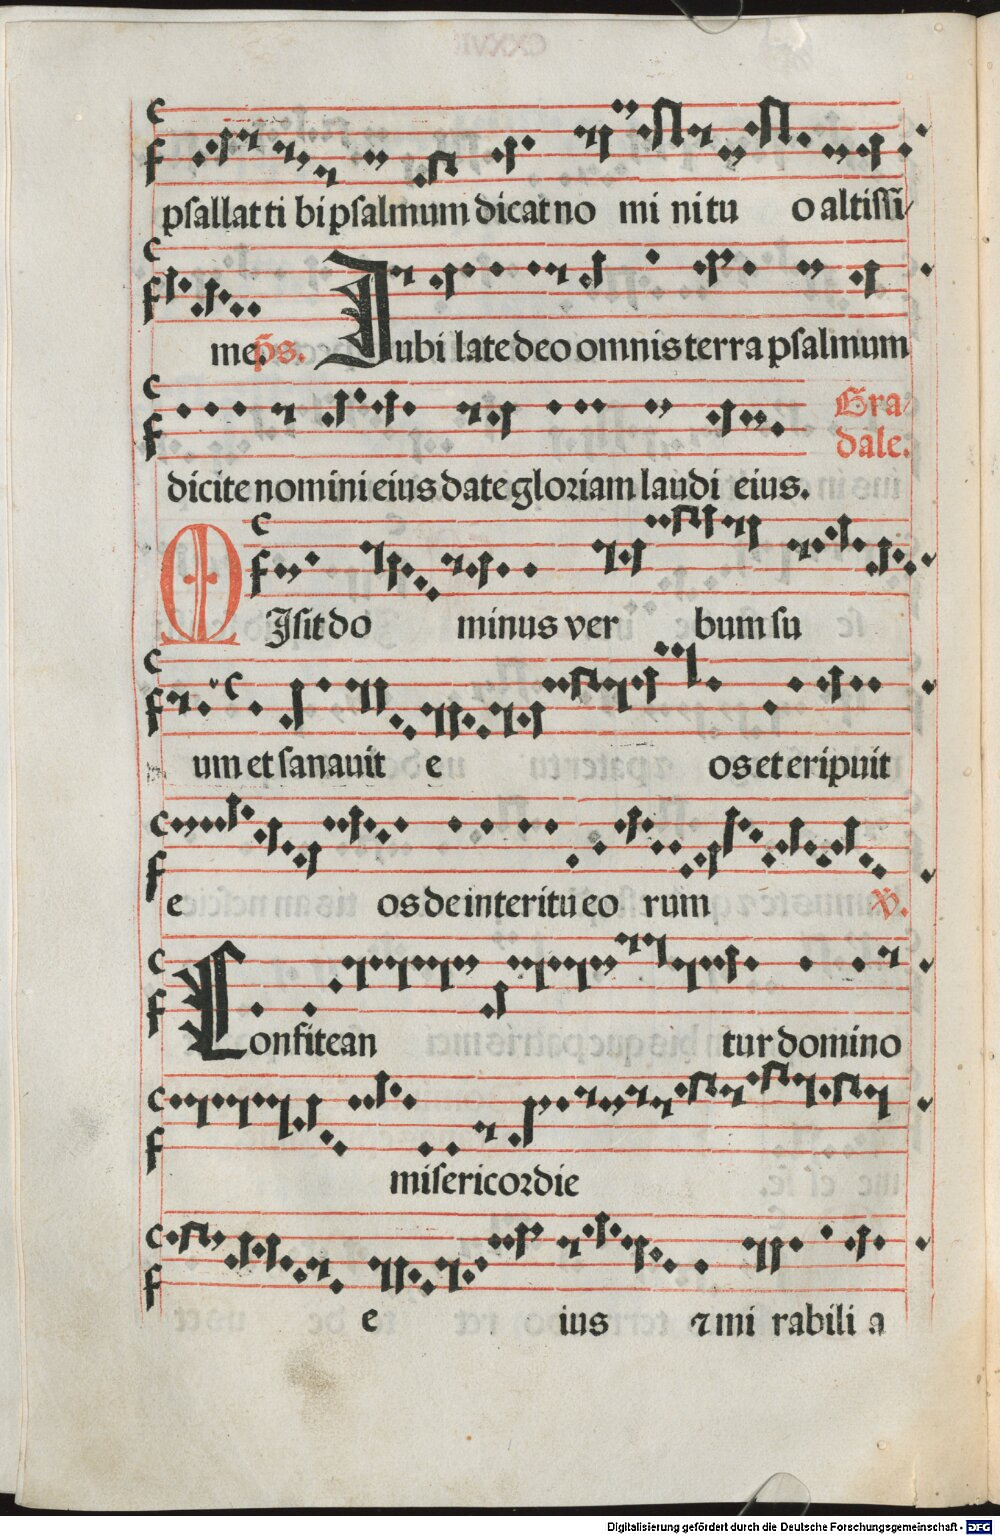 psallat ti bi psalmum dicat no mi ni tu o altissi
me. ps. Iubi late deo omnis terra psalmum
Gra
dale.
dicite nomini eius date gloriam laudi eius.
MIsit do minus ver bum su
um et sanauit e os et eripuit
e os de interitu eo rum ℣.
Confitean tur domino
misericordie
e ius ⁊ mi rabili a
Digitalisierung gefördert durch die Deutsche Forschungsgemeinschaft - DFG